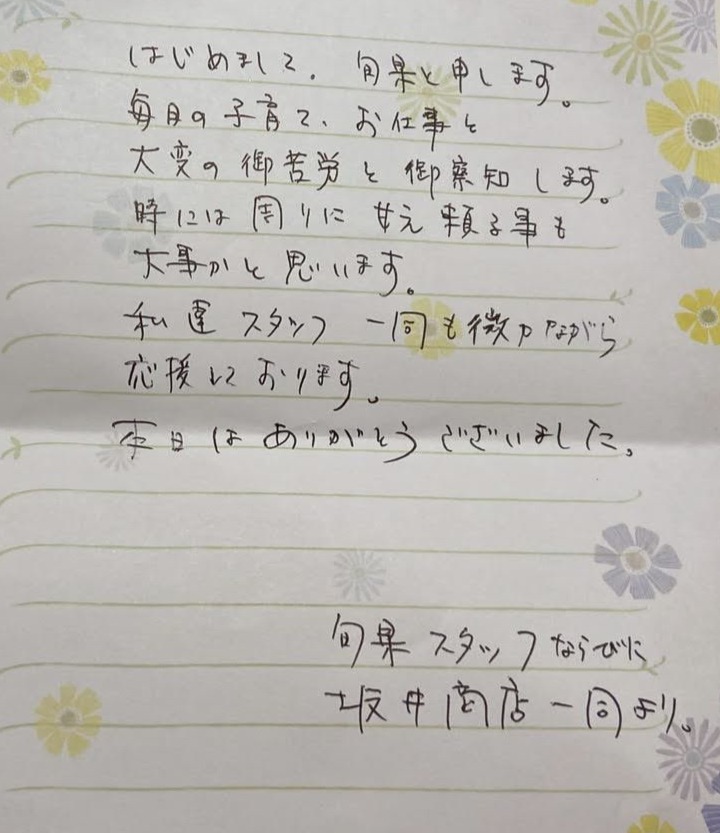 はじめまして、旬果と申します。
毎日の子育て、お仕事と
大変の御苦労と御察知します。
時には周りに甘え頼る事も
大事かと思います。
私達スタッフ一同も微力ながら
応援しております。
本日はありがとうございました。
旬果スタッフならびに
坂井商店一同より。